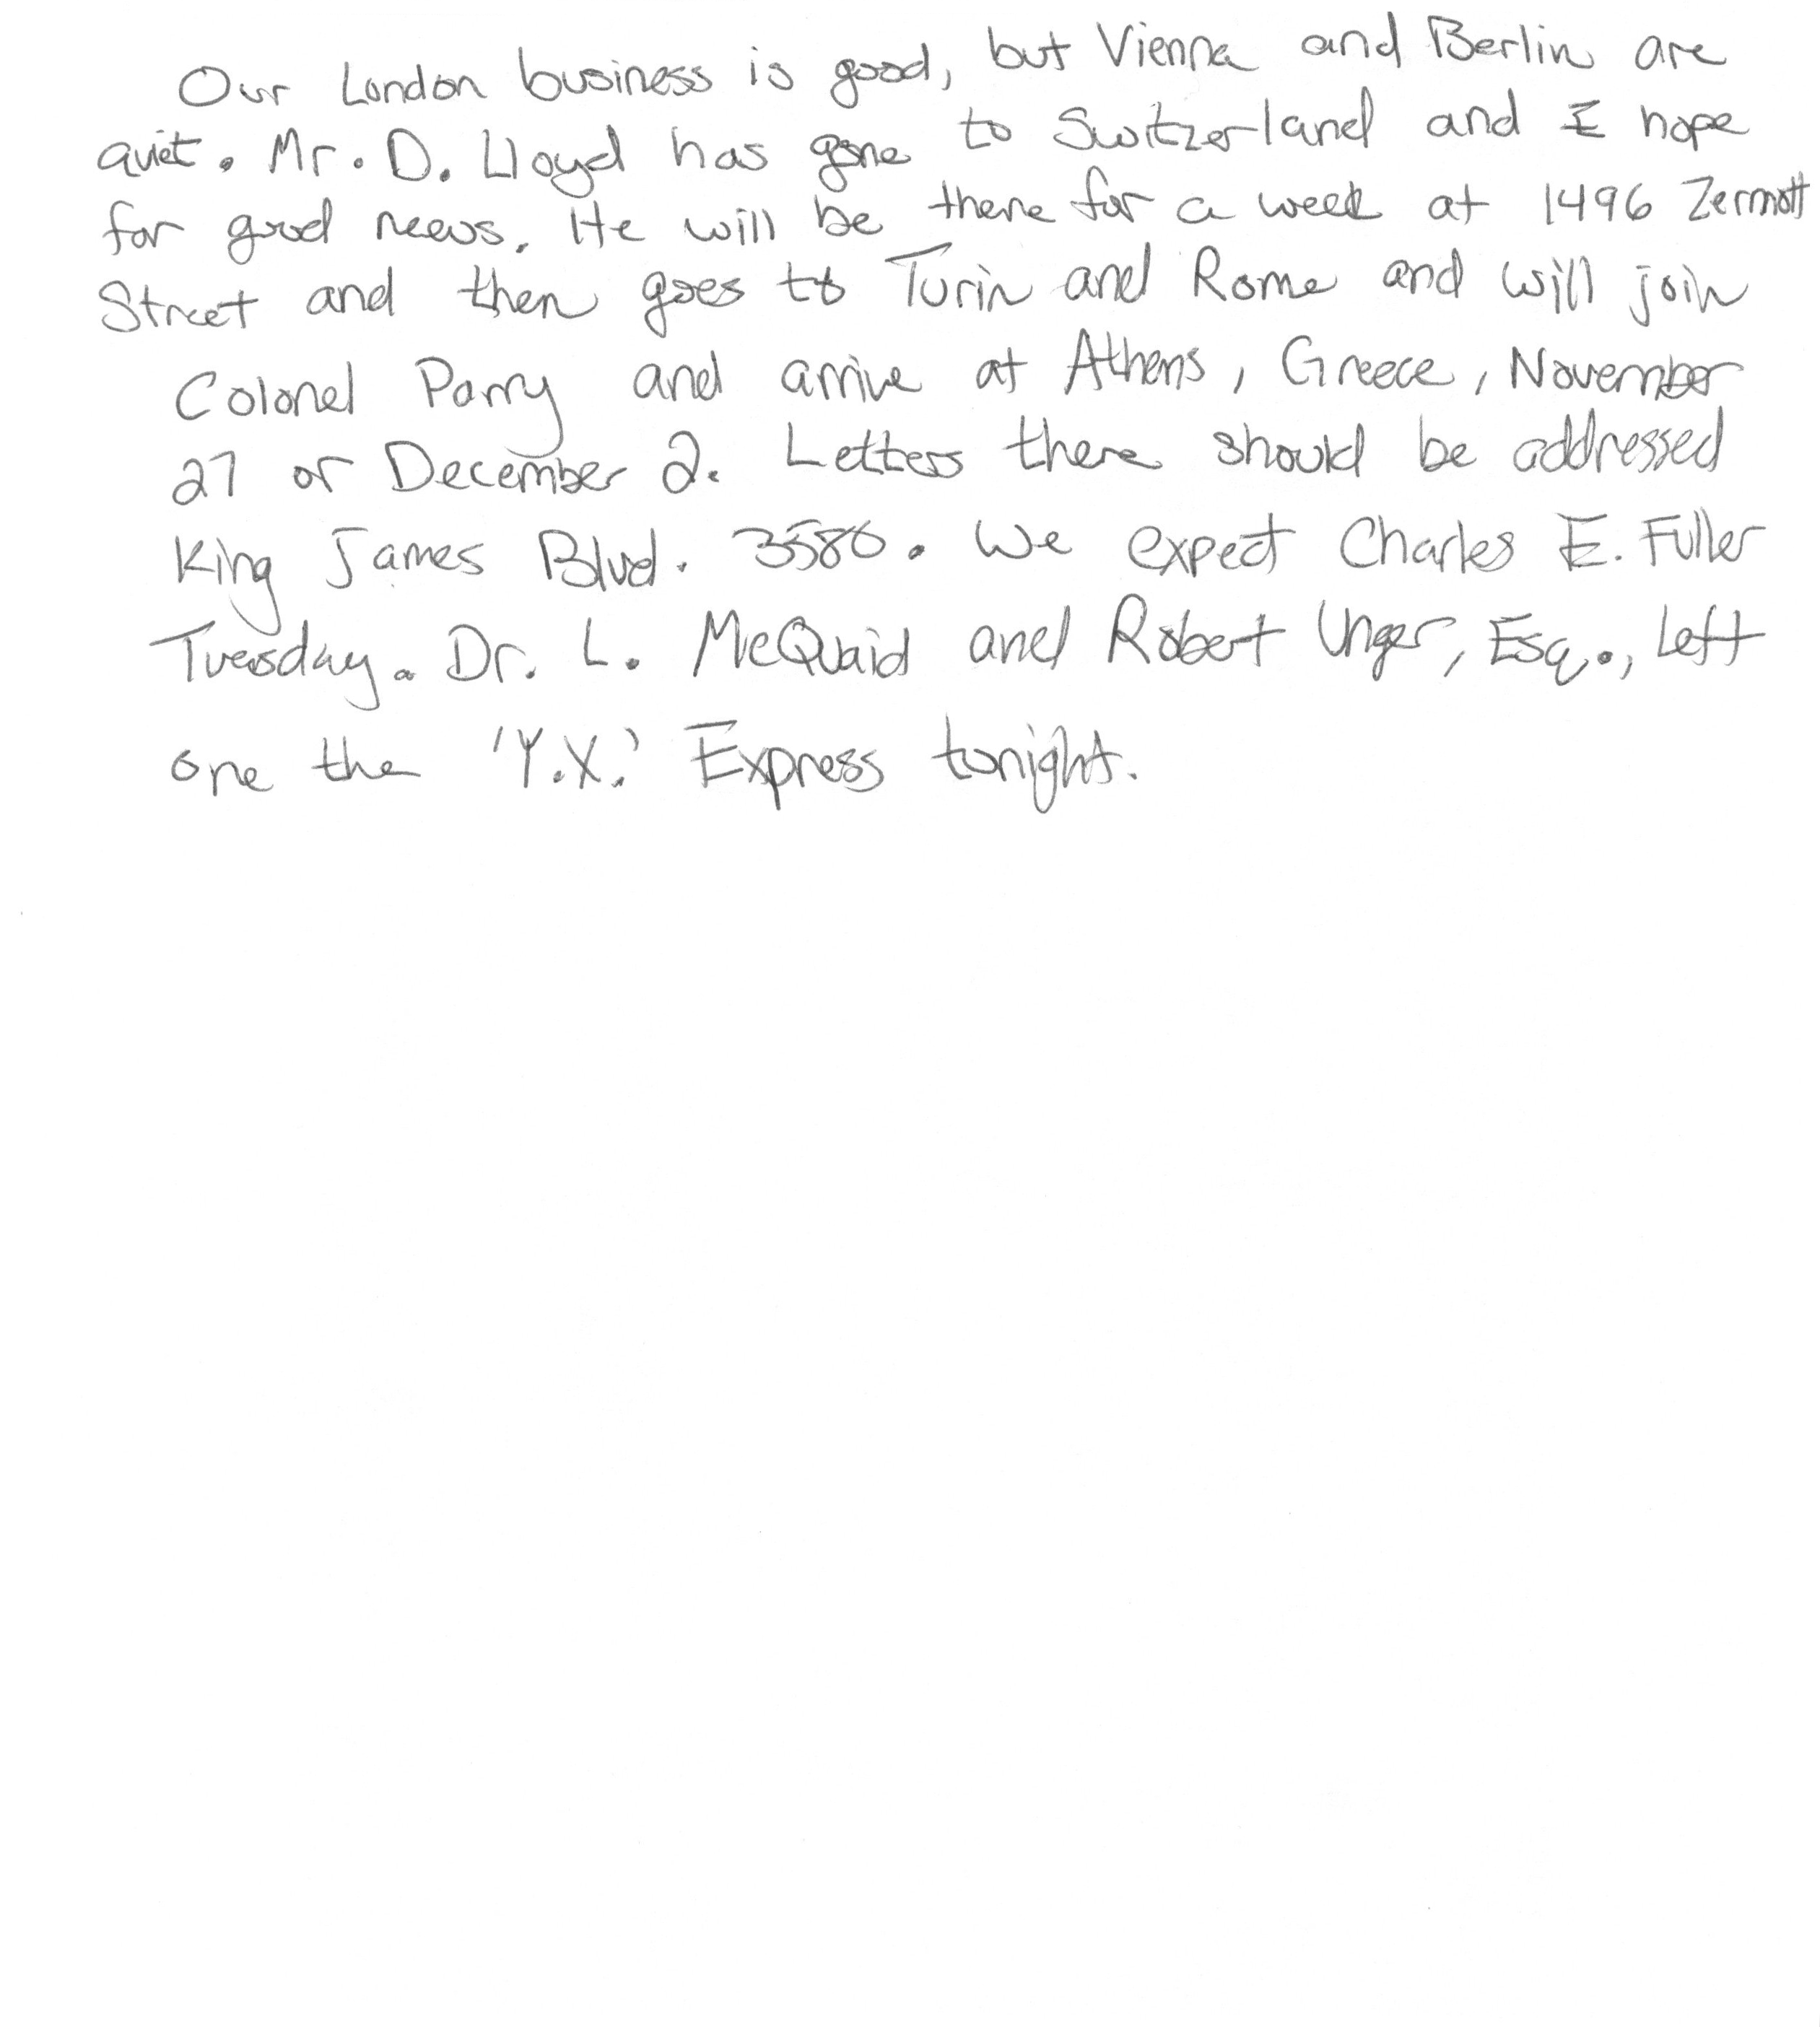 Our London business is good, but Vienna and Berlin are
quiet. Mr. D. Lloyd has gone to Switzerland and I hope
for good news. He will be there for a week at 1496 Zermott
Street and then goes to Turin and Rome and will join
Colonel Parry and arrive at Athens, Greece, November
27 or December 2. Letters there should be addressed
King James Blvd. 3580. We expect Charles E. Fuller
Tuesday. Dr. L. McQuaid and Robert Unger, Esq., Left
one the 'Y.X.' Express tonight.